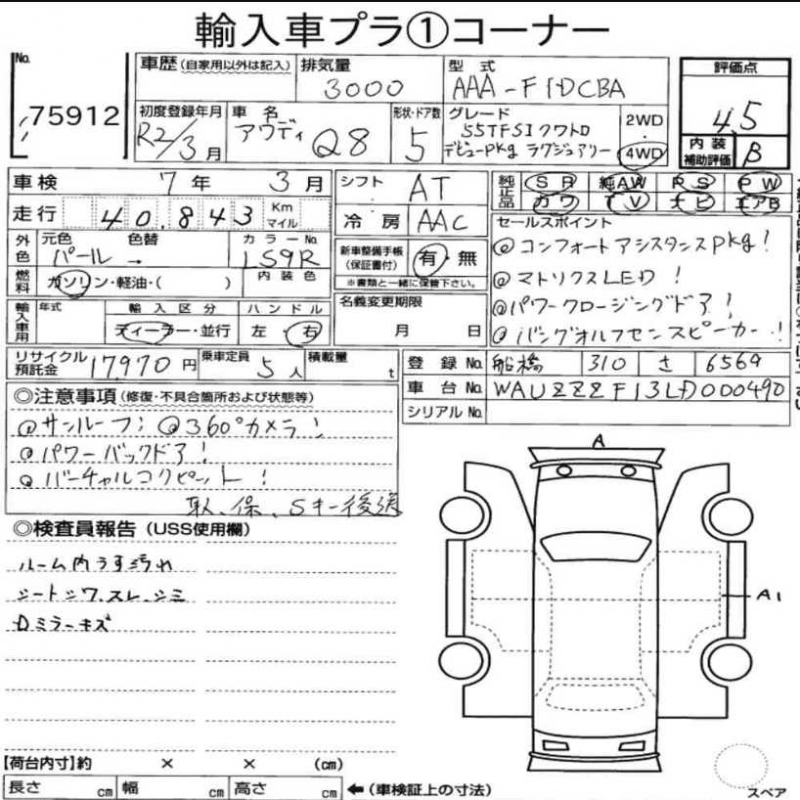 輸入車プラ①コーナー
No. 75912
車歴 (自家用以外は記入) 排気量 3000 型式 AAA-F1DCBA
初度登録年月 R2/3月 車名 アウディ Q8 形状・ドア数 5 グレード 55TFSIクワトロ デビューPkg ラグジュアリー 2WD・4WD
評価点 4.5
内装補助評価 B
車検 7年 3月 シフト AT
走行 40.843 Km マイル 冷房 AAC
純正品 SR 純AW PS PW
カワ TV ナビ エアB
外色 元色 パール 色替 → カラーNo. LS9R
内装色
燃料 ガソリン・軽油・( )
新車整備手帳(保証書付) 有・無
※書類と一緒に保管下さい。
セールスポイント
@コンフォートアシスタンスPkg!
@マトリクスLED!
@パワークロージングドア!
@バングオルフセンスピーカー!
輸入車用 年式 輸入区分 ディーラー・並行 ハンドル 左 右
名義変更期限 月 日
リサイクル預託金 17,970円 乗車定員 5人 積載量 t
登録No. 船橋 310 さ 6569
車台No. WAUZZZF13LD000490
シリアルNo.
◎注意事項 (修復・不具合箇所および状態等)
@サンルーフ! @360°カメラ!
@パワーバックドア!
@バーチャルコクピット!
取、保、Sキー後送
◎検査員報告 (USS使用欄)
ルーム内うす汚れ
シートシワ、スレ、シミ
Dミラーキズ
A
A1
【荷台内寸】約 × × (cm)
長さ cm 幅 cm 高さ cm ←(車検証上の寸法)
スペア